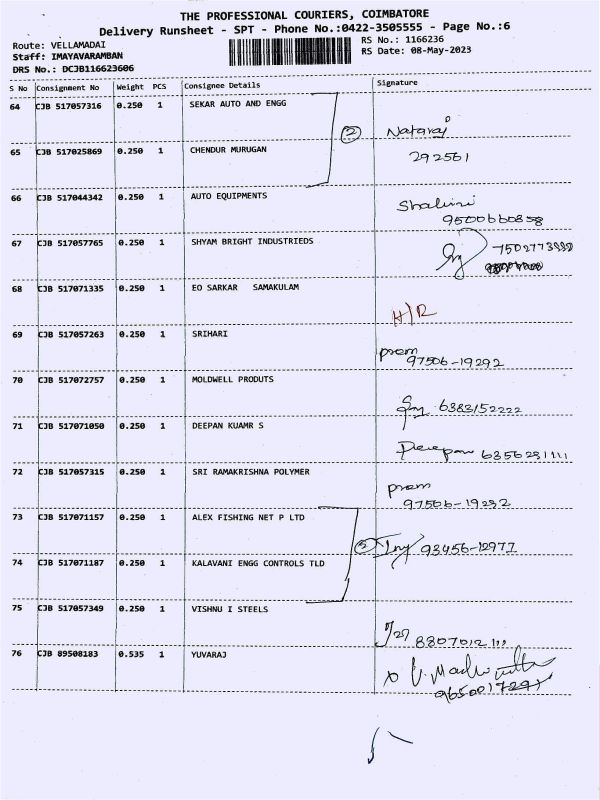 THE PROFESSIONAL COURIERS, COIMBATORE
Delivery Runsheet - SPT - Phone No.:0422-3505555 - Page No.:6
Route: VELLAMADAI RS No.: 1166236
Staff: IMAYAVARAMBAN RS Date: 08-May-2023
DRS No.: DCJB116623606
S No Consignment No Weight PCS Consignee Details Signature
64 CJB 517057316 0.250 1 SEKAR AUTO AND ENGG
2 Nataraj
65 CJB 517025869 0.250 1 CHENDUR MURUGAN 292561
66 CJB 517044342 0.250 1 AUTO EQUIPMENTS Shalini
9500660858
67 CJB 517057765 0.250 1 SHYAM BRIGHT INDUSTRIEDS
68 CJB 517071335 0.250 1 EO SARKAR SAMAKULAM
H/R
69 CJB 517057263 0.250 1 SRIHARI prem
97506-19292
70 CJB 517072757 0.250 1 MOLDWELL PRODUTS
6383152222
71 CJB 517071050 0.250 1 DEEPAN KUAMR S
Deepan 6356231111
72 CJB 517057315 0.250 1 SRI RAMAKRISHNA POLYMER prem
97506-19292
73 CJB 517071157 0.250 1 ALEX FISHING NET P LTD
2 93456-12977
74 CJB 517071187 0.250 1 KALAVANI ENGG CONTROLS TLD
75 CJB 517057349 0.250 1 VISHNU I STEELS
8807012111
76 CJB 89508183 0.535 1 YUVARAJ
9650017291